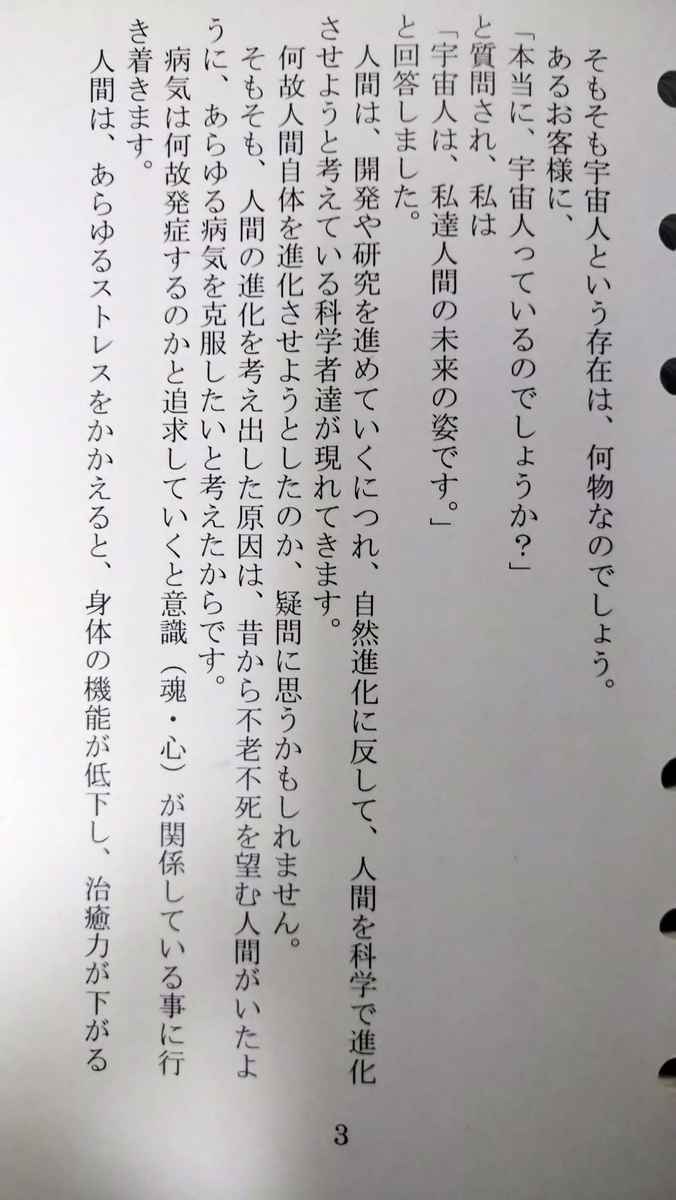 そもそも宇宙人という存在は、何物なのでしょう。
あるお客様に、
「本当に、宇宙人っているのでしょうか?」
と質問され、私は
「宇宙人は、私達人間の未来の姿です。」
と回答しました。
人間は、開発や研究を進めていくにつれ、自然進化に反して、人間を科学で進化
させようと考えている科学者達が現れてきます。
何故人間自体を進化させようとしたのか、疑問に思うかもしれません。
そもそも、人間の進化を考え出した原因は、昔から不老不死を望む人間がいたよ
うに、あらゆる病気を克服したいと考えたからです。
病気は何故発症するのかと追求していくと意識（魂・心）が関係している事に行
き着きます。
人間は、あらゆるストレスをかかえると、身体の機能が低下し、治癒力が下がる
3